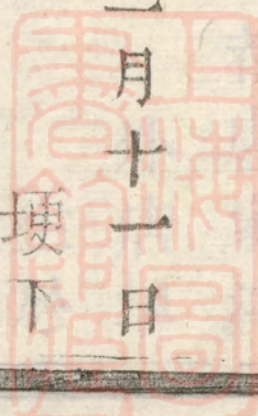 月十一日
埂下
上海圖
書館藏